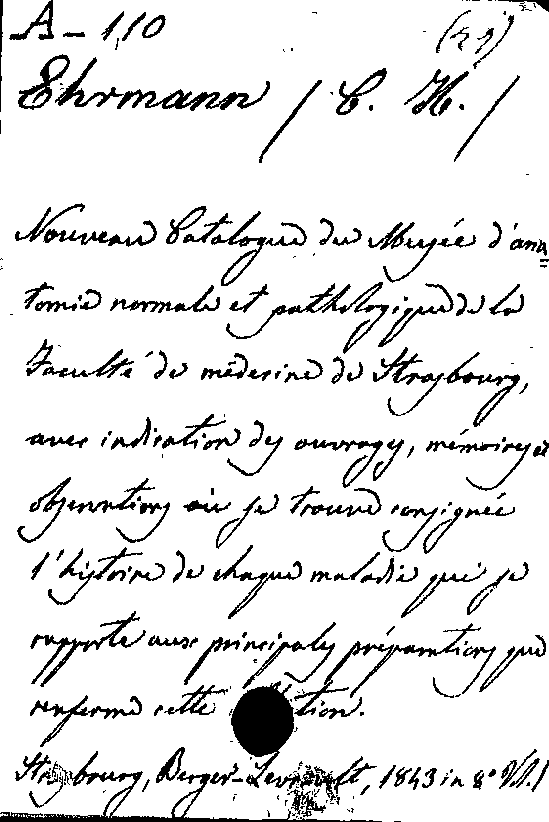 A - 110 (21)
Ehrmann / C. H. /
Nouveau Catalogue du Musée d'ana
tomie normale et pathologique de la
Faculté de médecine de Strasbourg,
avec indication des ouvrages, mémoires et
observations où se trouve consignée
l'histoire de chaque maladie qui se
rapporte aux principales préparations que
renferme cette
Strasbourg, Berger-Levrault, 1843 in 8°